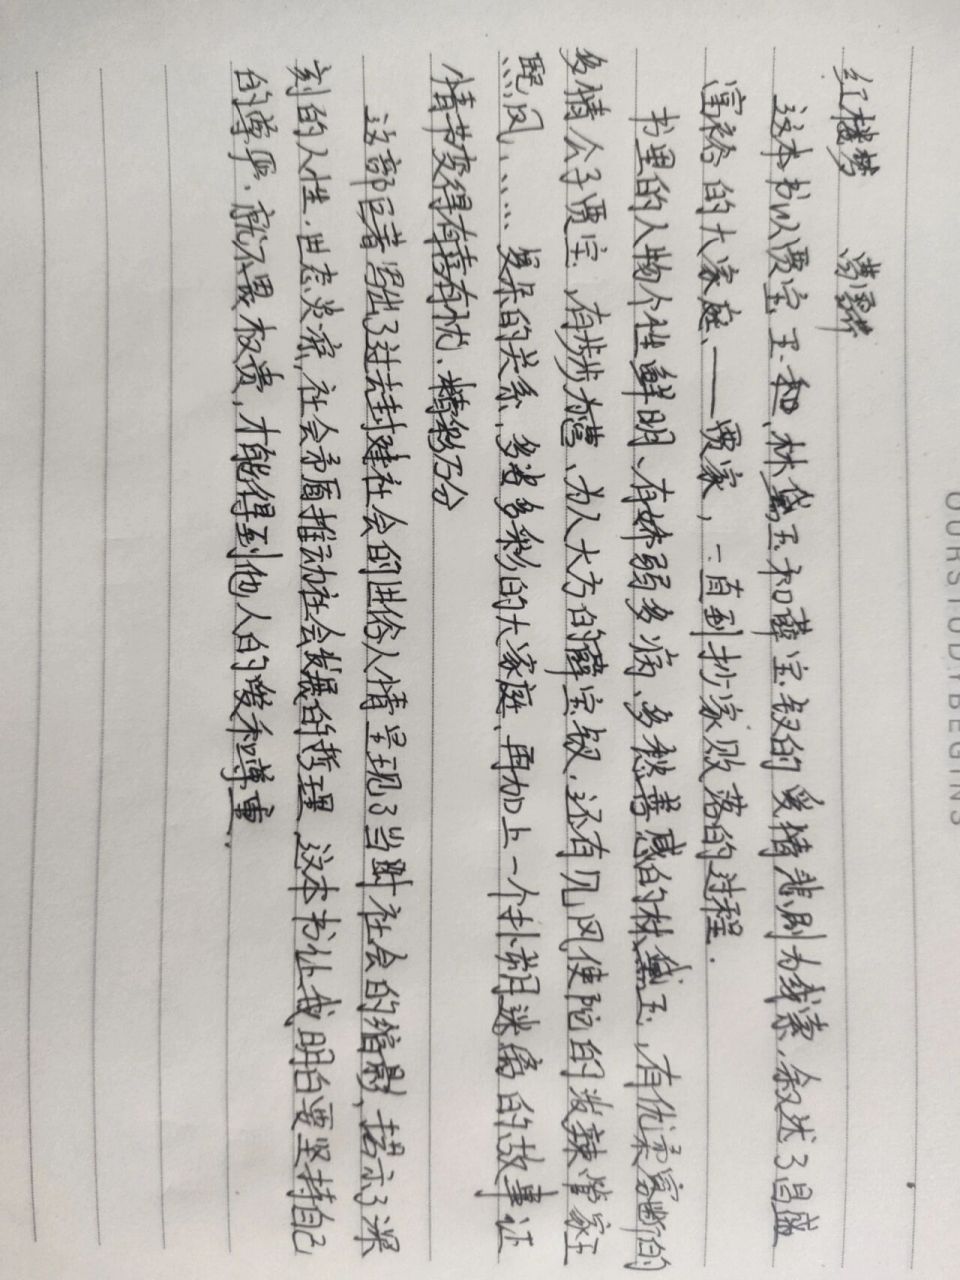 OURSTUDIYBEGINS
红楼梦 曹雪芹
这本书以贾宝玉.和.林黛玉和薛宝钗的爱情悲剧为线索.叙述了昌盛
富裕的大家庭.——贾家,一直到抄家败落的过程.
书里的人物个性鲜明、有娇弱多病、多愁善感的林黛玉,有优柔寡断的
多情公子贾宝、有步步为营、为人大方的薛宝钗.还有见风使陀的泼辣管家王
熙凤......复杂的关系,多姿多彩的大家庭,再加上一个扑朔迷离的故事让
情节变得有喜有忧.精彩万分
这部巨著写出了过去封建社会的世俗人情呈现了当时社会的缩影,揭示了深
刻的人性.世态炎凉,社会矛盾推动社会发展的哲理 这本书让我明白要坚持自己
的尊严.就不畏权贵,才能得到他人的爱和尊重.